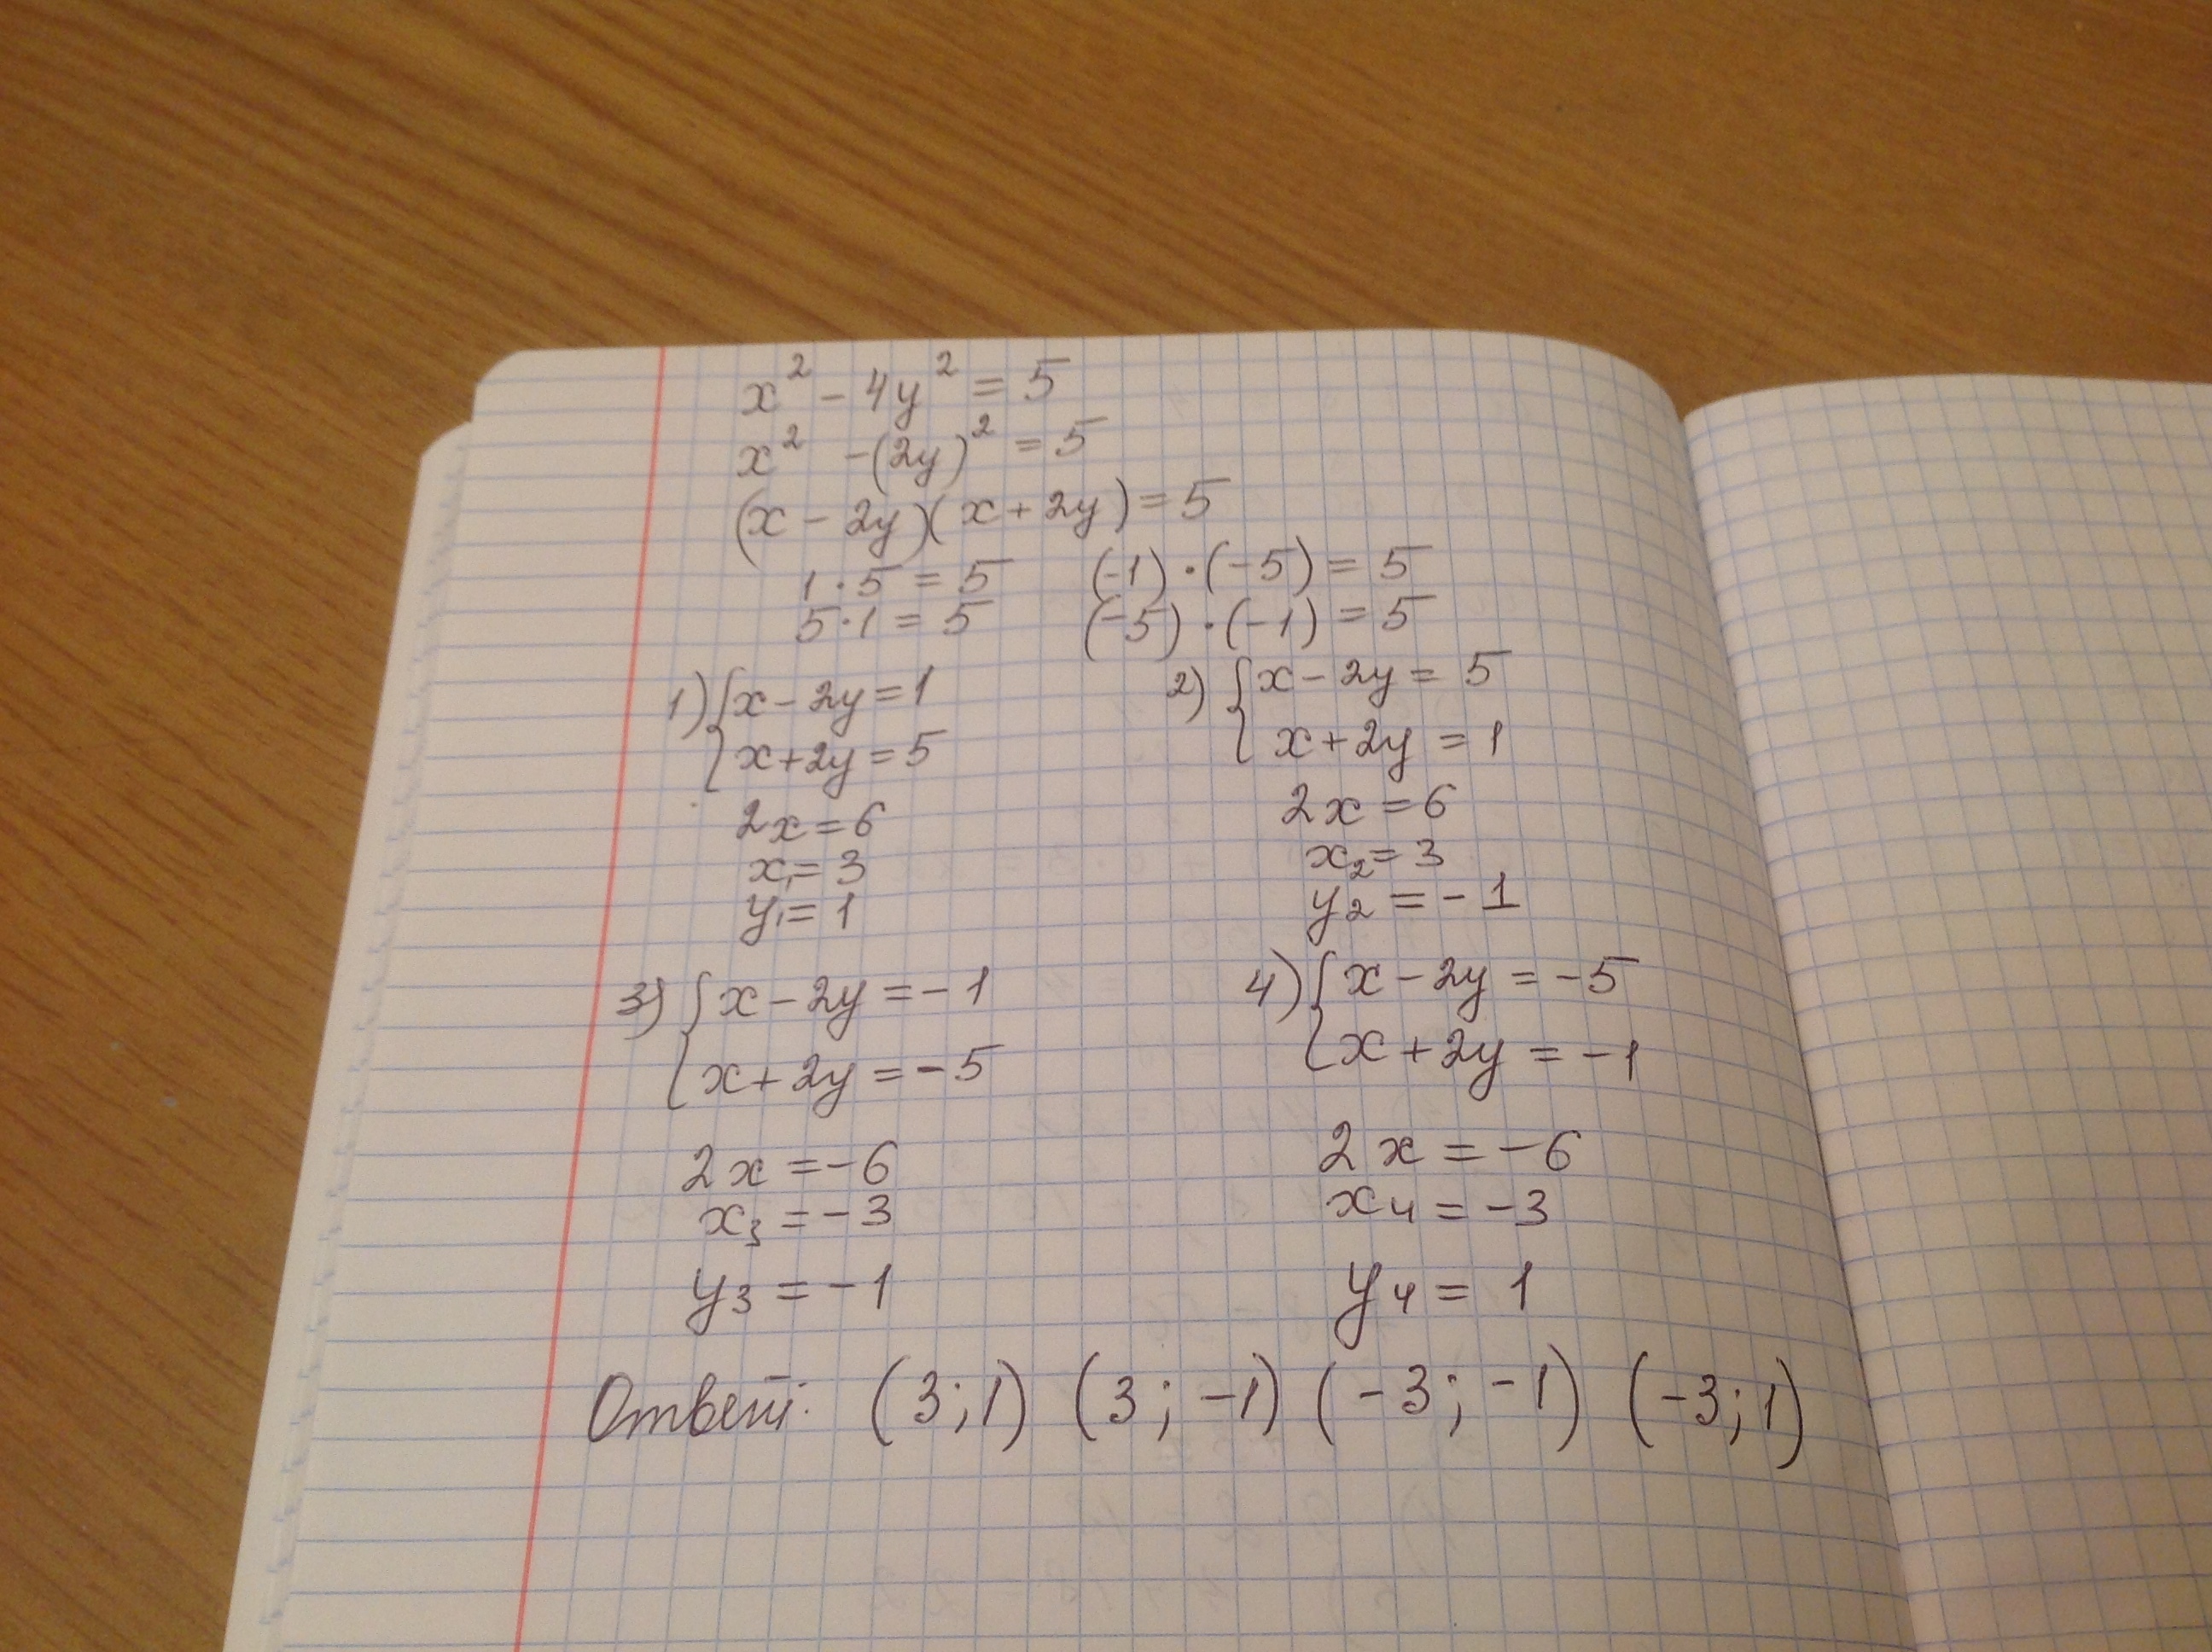 x² - 4y² = 5
x² - (2y)² = 5
(x - 2y)(x + 2y) = 5
1 · 5 = 5 (-1) · (-5) = 5
5 · 1 = 5 (-5) · (-1) = 5
1) { x - 2y = 1
x + 2y = 5
2x = 6
x₁ = 3
y₁ = 1
2) { x - 2y = 5
x + 2y = 1
2x = 6
x₂ = 3
y₂ = - 1
3) { x - 2y = - 1
x + 2y = - 5
2x = - 6
x₃ = - 3
y₃ = - 1
4) { x - 2y = - 5
x + 2y = - 1
2x = - 6
x₄ = - 3
y₄ = 1
Ответ: (3; 1) (3; -1) (-3; -1) (-3; 1)